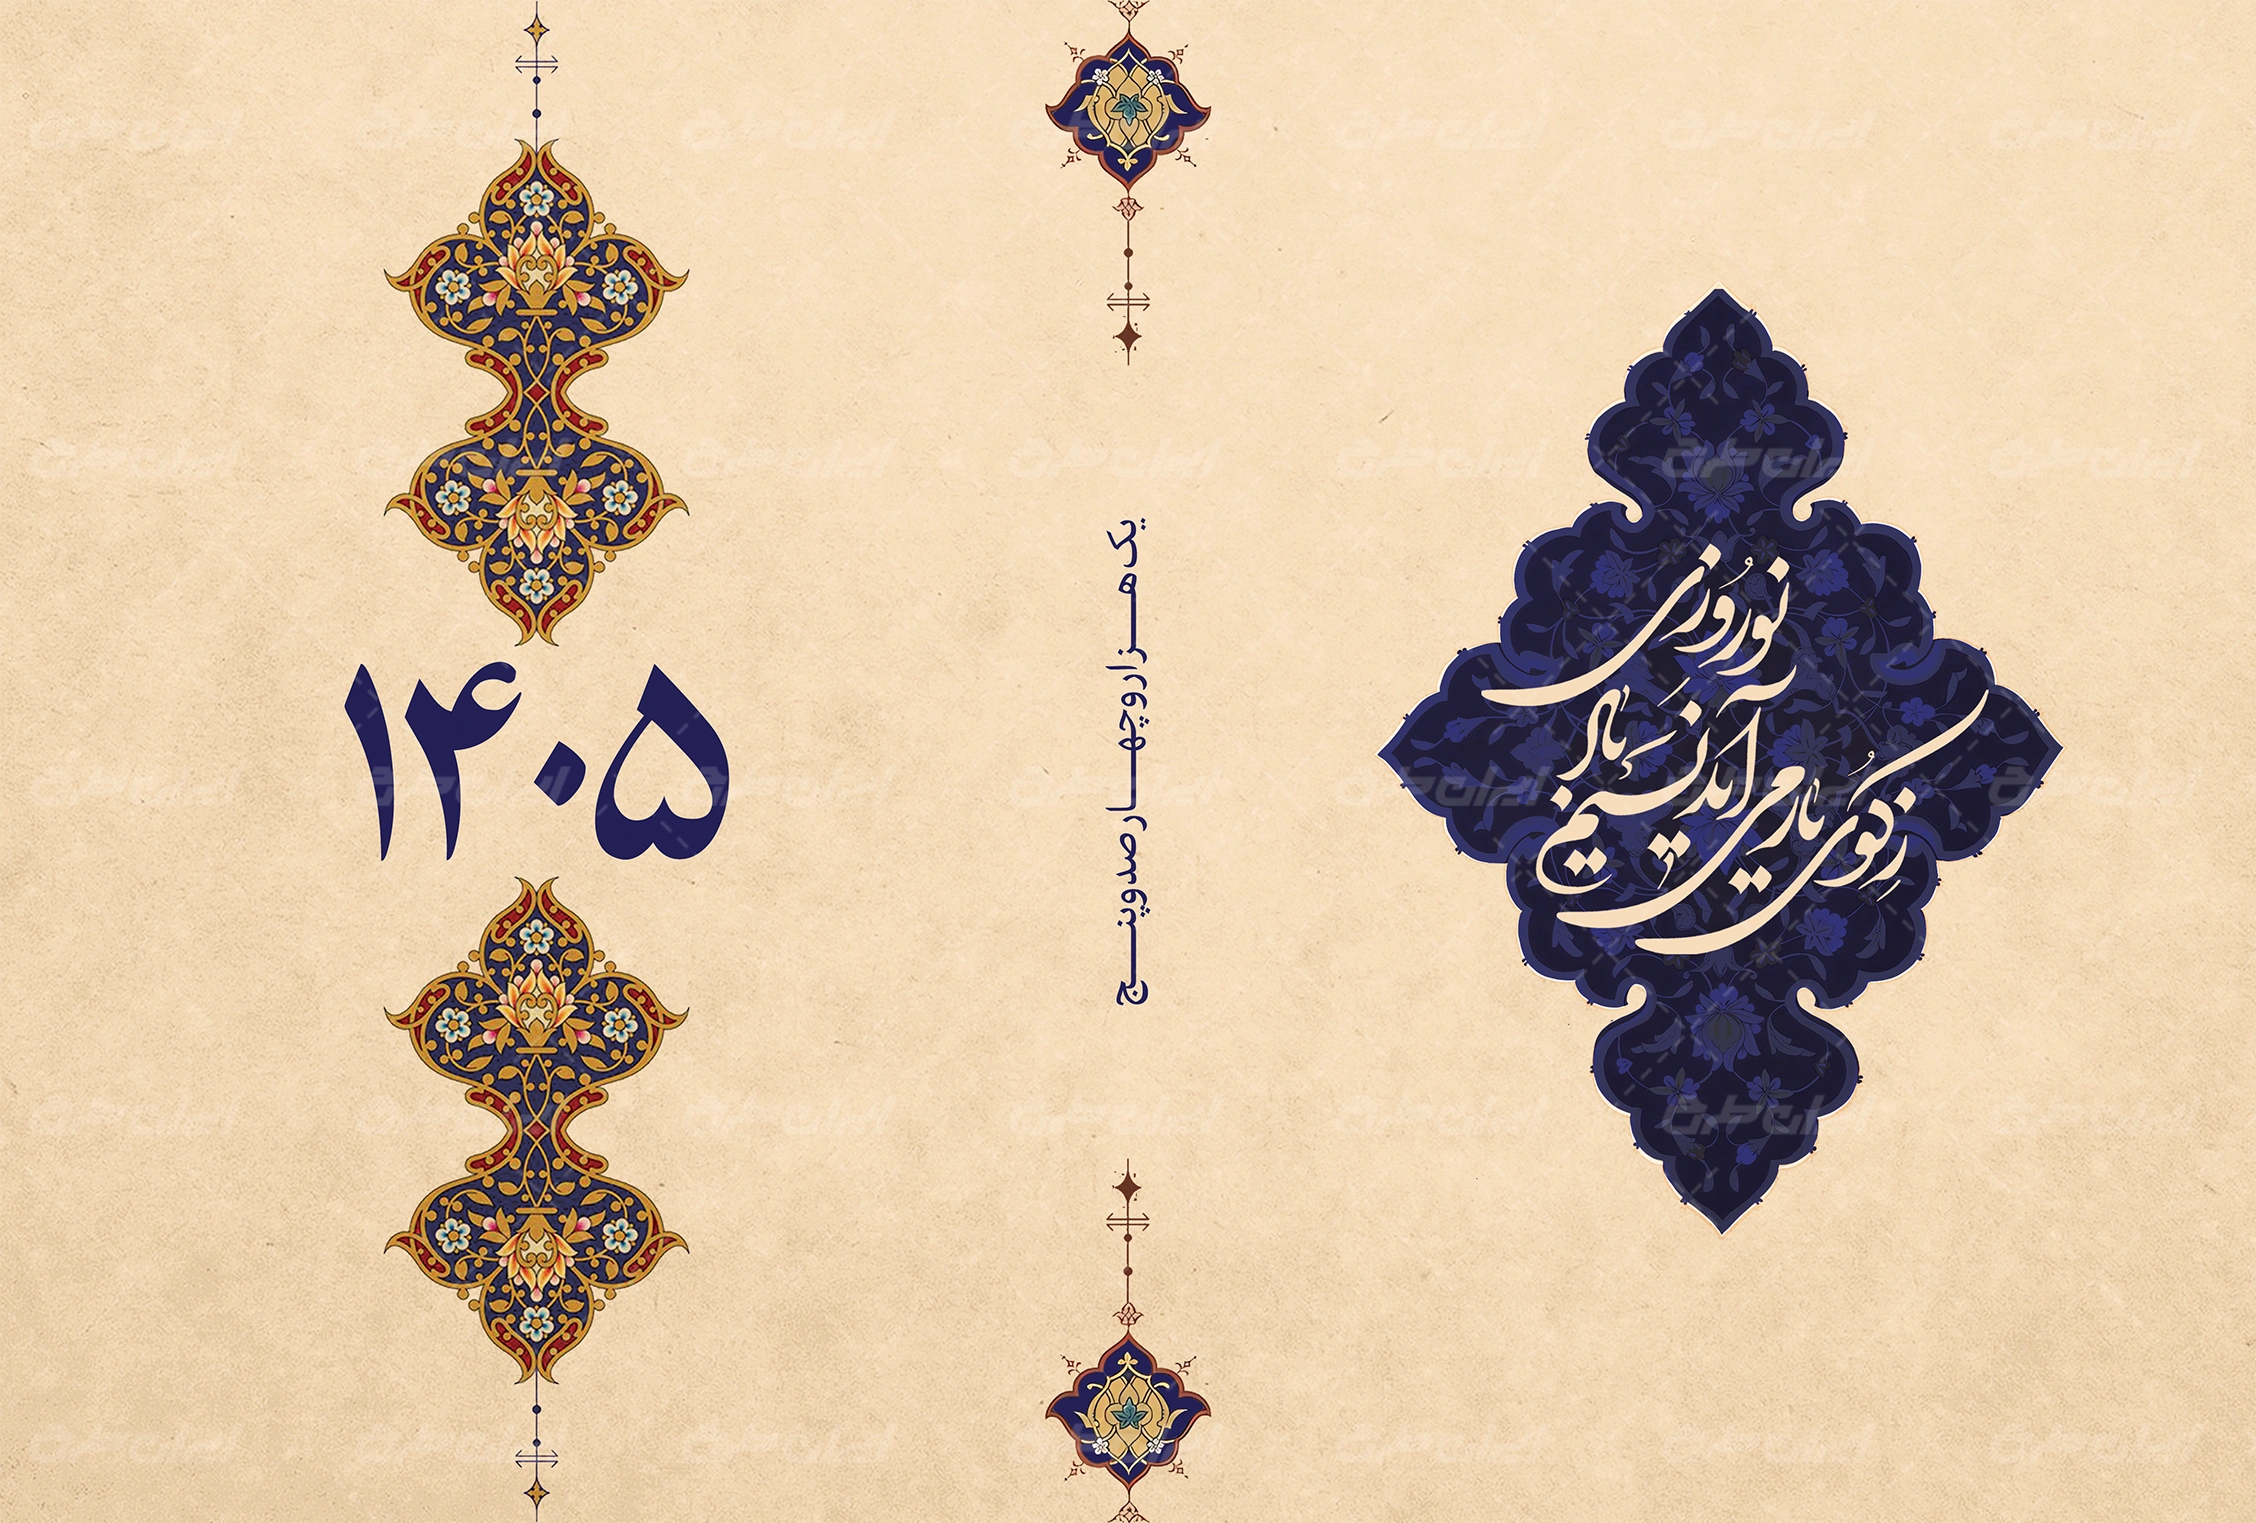 ز کوی یار می آید نسیم باد نوروزی
یک هزار و چهار صد و پنج
۱۴۰۵
ایران طرح